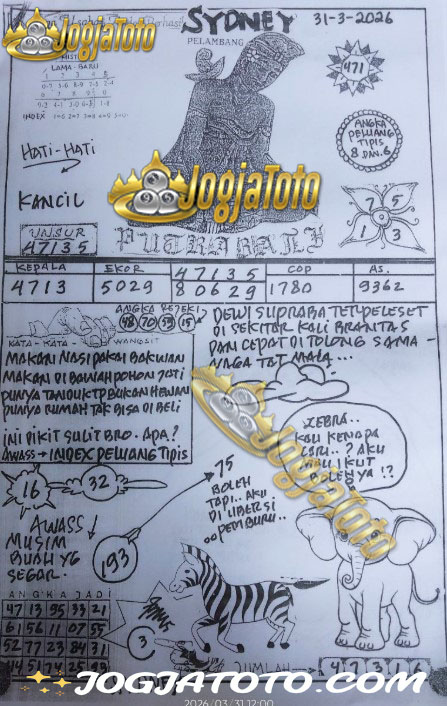 JogjaToto
SYDNEY
31-3-2026
PELAMBANG
LAMA - BARU
INDEX
471
HATI-HATI
KANCIL
ANGKA
PELUANG
TIPIS
8 DAN 6
JogjaToto
7 5
1 3
UNSUR
47135
PUTRA BALI
KEPALA
EKOR
47135
COP
AS.
4713
5029
80629
1780
9362
ANGKA REJEKI
48 70 59 15
KATA - KATA - WANGSIT
MAKAN NASI PAKAI BAKWAN
MAKAN DI BAWAH POHON JATI
PUNYA TANDUK TP BUKAN HEWAN
PUNYA RUMAH TAK BISA DI BELI
INI DIKIT SULIT BRO. APA?
AWASS → INDEX PELUANG TIPIS
DEWI SUPRABA TERPELESET
DI SEKITAR KALI BRANTAS
DAN CEPAT DI TOLONG SAMA -
NAGA TAT MALA...
JogjaToto
ZEBRA..
KAU KENAPA
LARI..? AKU
MAU IKUT
BOLEHYA !?
16
32
75
BOLEH
TAPI.. AKU
DI UBERSI
PEMBURU..
AWASS!
MUSIM
BUAH YG
SEGAR.
193
ANGKA JADI
47 13 95 33 21
61 56 11 07 55
52 77 23 84 31
3
JUMLAH
4 7 3 1 6
JOGJATOTO.COM
2026/03/31 12:00